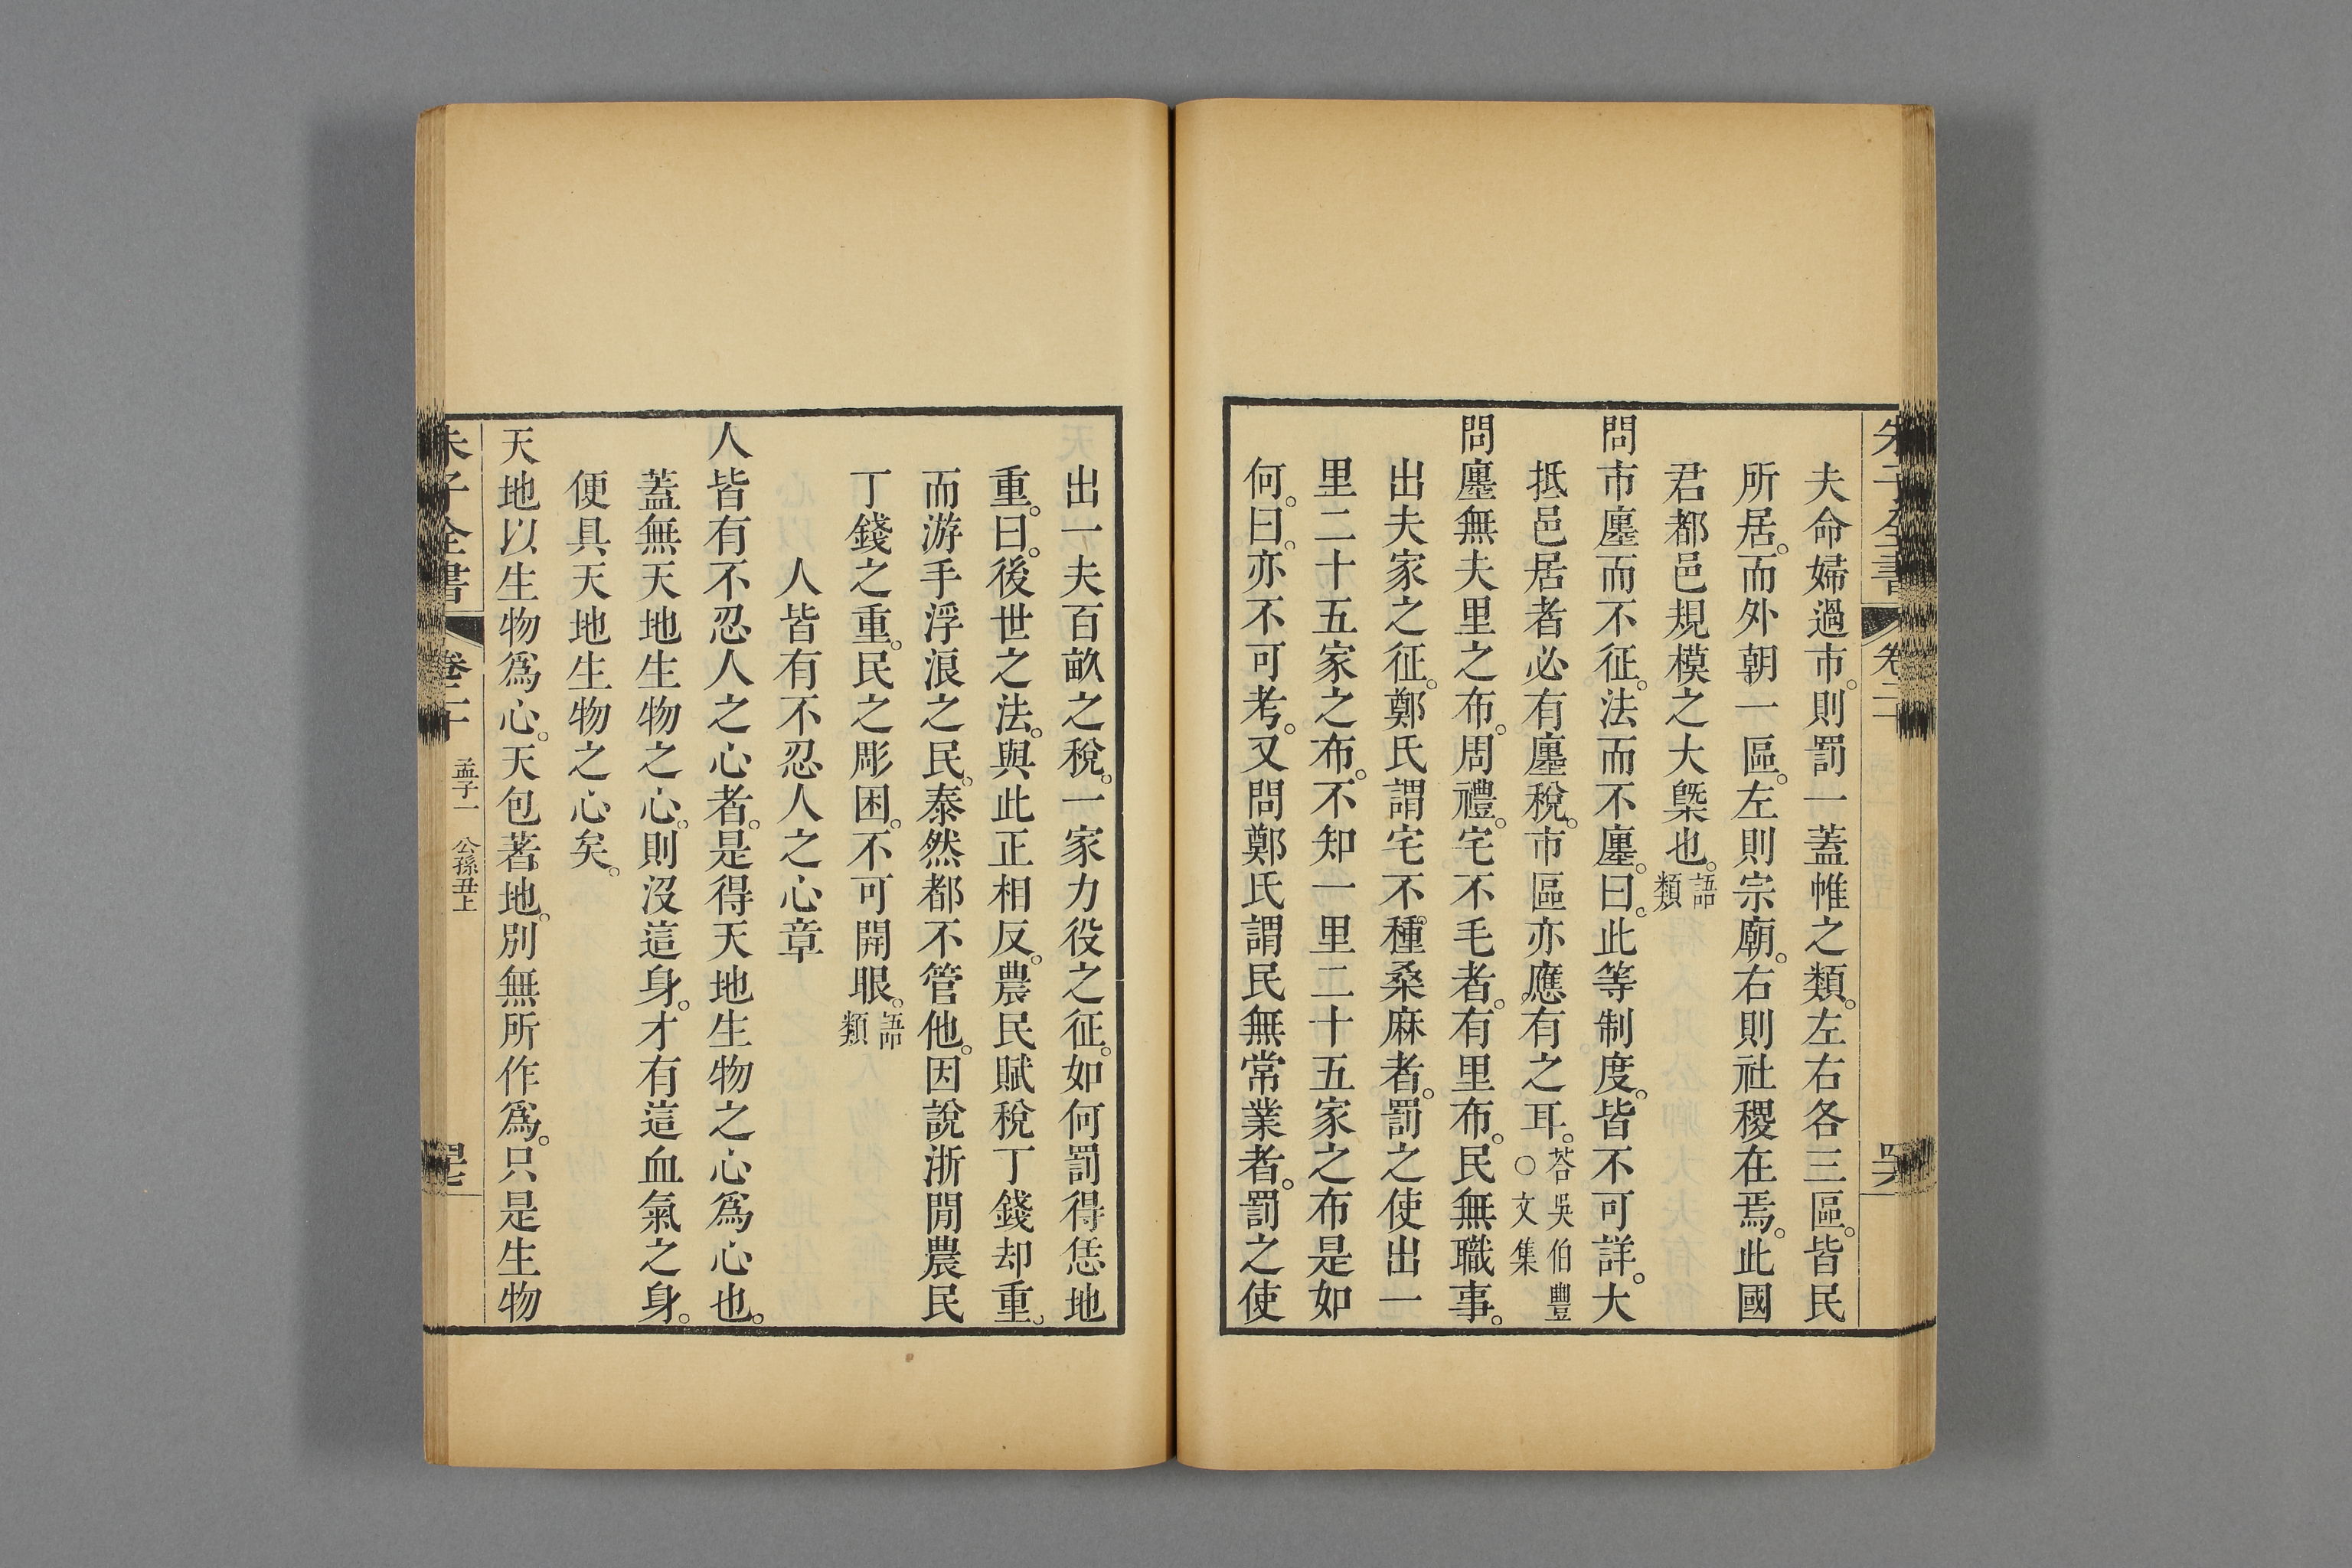 朱子全書 卷二十
夫命婦過市。則罰一蓋帷之類。左右各三區。皆民
所居。而外朝一區。左則宗廟。右則社稷在焉。此國
君都邑規模之大槩也。語類
問市廛而不征。法而不廛。曰。此等制度。皆不可詳。大
抵邑居者必有廛稅。市區亦應有之耳。荅吳伯豐○文集
問廛無夫里之布。周禮。宅不毛者。有里布。民無職事。
出夫家之征。鄭氏謂宅不種桑麻者。罰之使出一
里二十五家之布。不知一里二十五家之布是如
何。曰。亦不可考。又問鄭氏謂民無常業者。罰之使
出一夫百畝之稅。一家力役之征。如何罰得恁地
重。曰。後世之法。與此正相反。農民賦稅丁錢却重。
而游手浮浪之民。泰然都不管他。因說浙閒農民
丁錢之重。民之彫困。不可開眼。語類
人皆有不忍人之心章
人皆有不忍人之心者。是得天地生物之心爲心也。
蓋無天地生物之心。則沒這身。才有這血氣之身。
便具天地生物之心矣。
天地以生物爲心。天包著地。別無所作爲。只是生物
朱子全書 卷二十 孟子一 公孫丑上